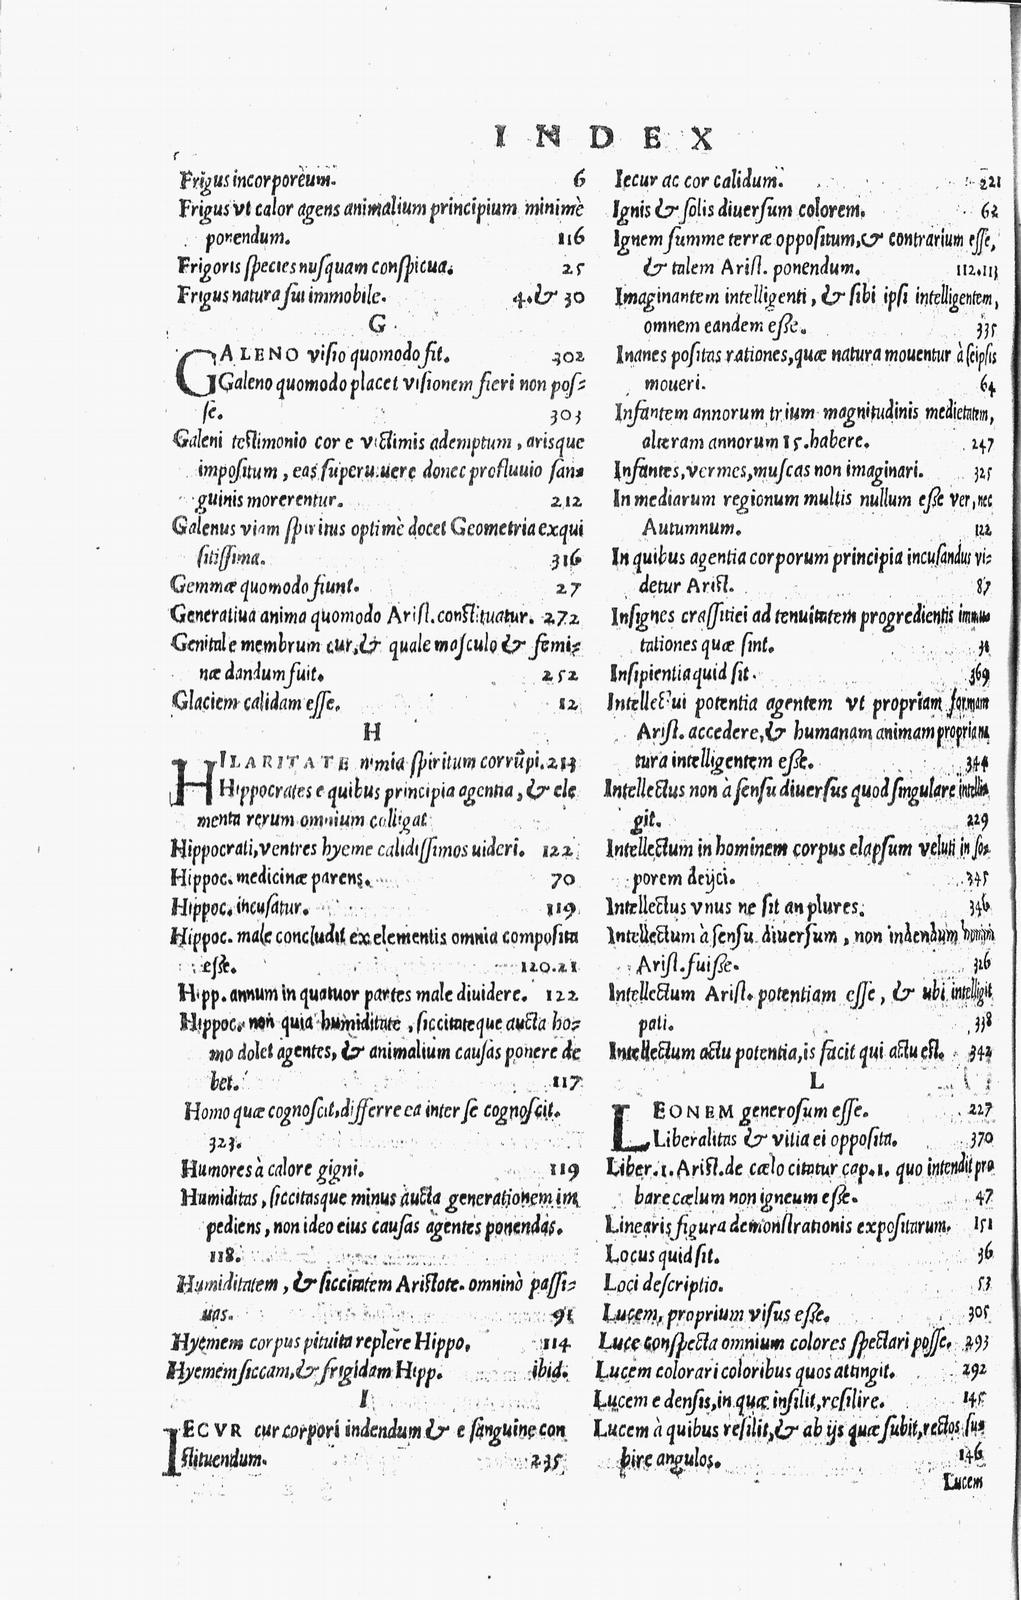 INDEX
Frigus incorporeum. 6
Frigus vt calor agens animalium principium minimè
ponendum. 116
Frigoris species nusquam conspicua. 25
Frigus natura sui immobile. 4.& 30
G
GALENO visio quomodo sit. 302
Galeno quomodo placet visionem fieri non pos-
se. 303
Galeni testimonio cor e victimis ademptum, arisque
impositum, eas superuiuere donec profluuio san-
guinis morerentur. 212
Galenus viam spiritus optimè docet Geometria exqui
sitissima. 316
Gemmæ quomodo fiunt. 27
Generatiua anima quomodo Arist. constituatur. 272
Genitale membrum cur, & quale masculo & femi-
næ dandum fuit. 252
Glaciem calidam esse. 12
H
HILARITATE nimia spiritum corrũpi. 213
Hippocrates e quibus principia agentia, & ele
menta rerum omnium colligat
Hippocrati, ventres hyeme calidissimos uideri. 122
Hippoc. medicinæ parens. 70
Hippoc. incusatur. 119
Hippoc. male concludit ex elementis omnia composita
esse. 120.21
Hipp. annum in quatuor partes male diuidere. 122
Hippoc. non quia humiditate, siccitateque aucta ho-
mo dolet agentes, & animalium causas ponere de
bet. 117
Homo quæ cognoscit, differre ea inter se cognoscit.
323.
Humores à calore gigni. 119
Humiditas, siccitasque minus aucta generationem im
pediens, non ideo eius causas agentes ponendas.
118.
Humiditatem, & siccitatem Aristote. omninò passi-
uas. 91
Hyemem corpus pituita replere Hippo. 114
Hyemem siccam, & frigidam Hipp. ibid.
I
IECVR cur corpori indendum & e sanguine con
stituendum. 235
Iecur ac cor calidum. 221
Ignis & solis diuersum colorem. 62
Ignem summe terræ oppositum, & contrarium esse,
& talem Arist. ponendum. 112.113
Imaginantem intelligenti, & sibi ipsi intelligentem,
omnem eandem esse. 335
Inanes positas rationes, quæ natura mouentur à seipsis
moueri. 64
Infantem annorum trium magnitudinis medietatem,
alteram annorum 15. habere. 247
Infantes, vermes, muscas non imaginari. 325
In mediarum regionum multis nullum esse ver, nec
Autumnum. 122
In quibus agentia corporum principia incusandus vi-
detur Arist. 87
Insignes crassitiei ad tenuitatem progredientis immu
tationes quæ sint.
Insipientia quid sit. 369
Intellectui potentia agentem vt propriam formam
Arist. accedere, & humanam animam propria na
tura intelligentem esse. 344
Intellectus non à sensu diuersus quod singulare intelli
git. 229
Intellectum in hominem corpus elapsum veluti in so-
porem deijci. 345
Intellectus vnus ne sit an plures. 346
Intellectum à sensu diuersum, non indendum homini
Arist. fuisse. 326
Intellectum Arist. potentiam esse, & ubi intelligit
pati. 338
Intellectum actu potentia, is facit qui actu est. 342
L
LEONEM generosum esse. 227
Liberalitas & vitia ei opposita. 370
Liber. 1. Arist. de cælo citatur cap. 1. quo intendit pro
bare cælum non igneum esse. 47
Linearis figura demonstrationis expositarum. 151
Locus quid sit. 36
Loci descriptio. 53
Lucem, proprium visus esse. 305
Luce conspecta omnium colores spectari posse. 293
Lucem colorari coloribus quos attingit. 292
Lucem e densis, in quæ insilit, resilire. 145
Lucem à quibus resilit, & ab ijs quæ subit, rectos su-
bire angulos. 146
Lucem